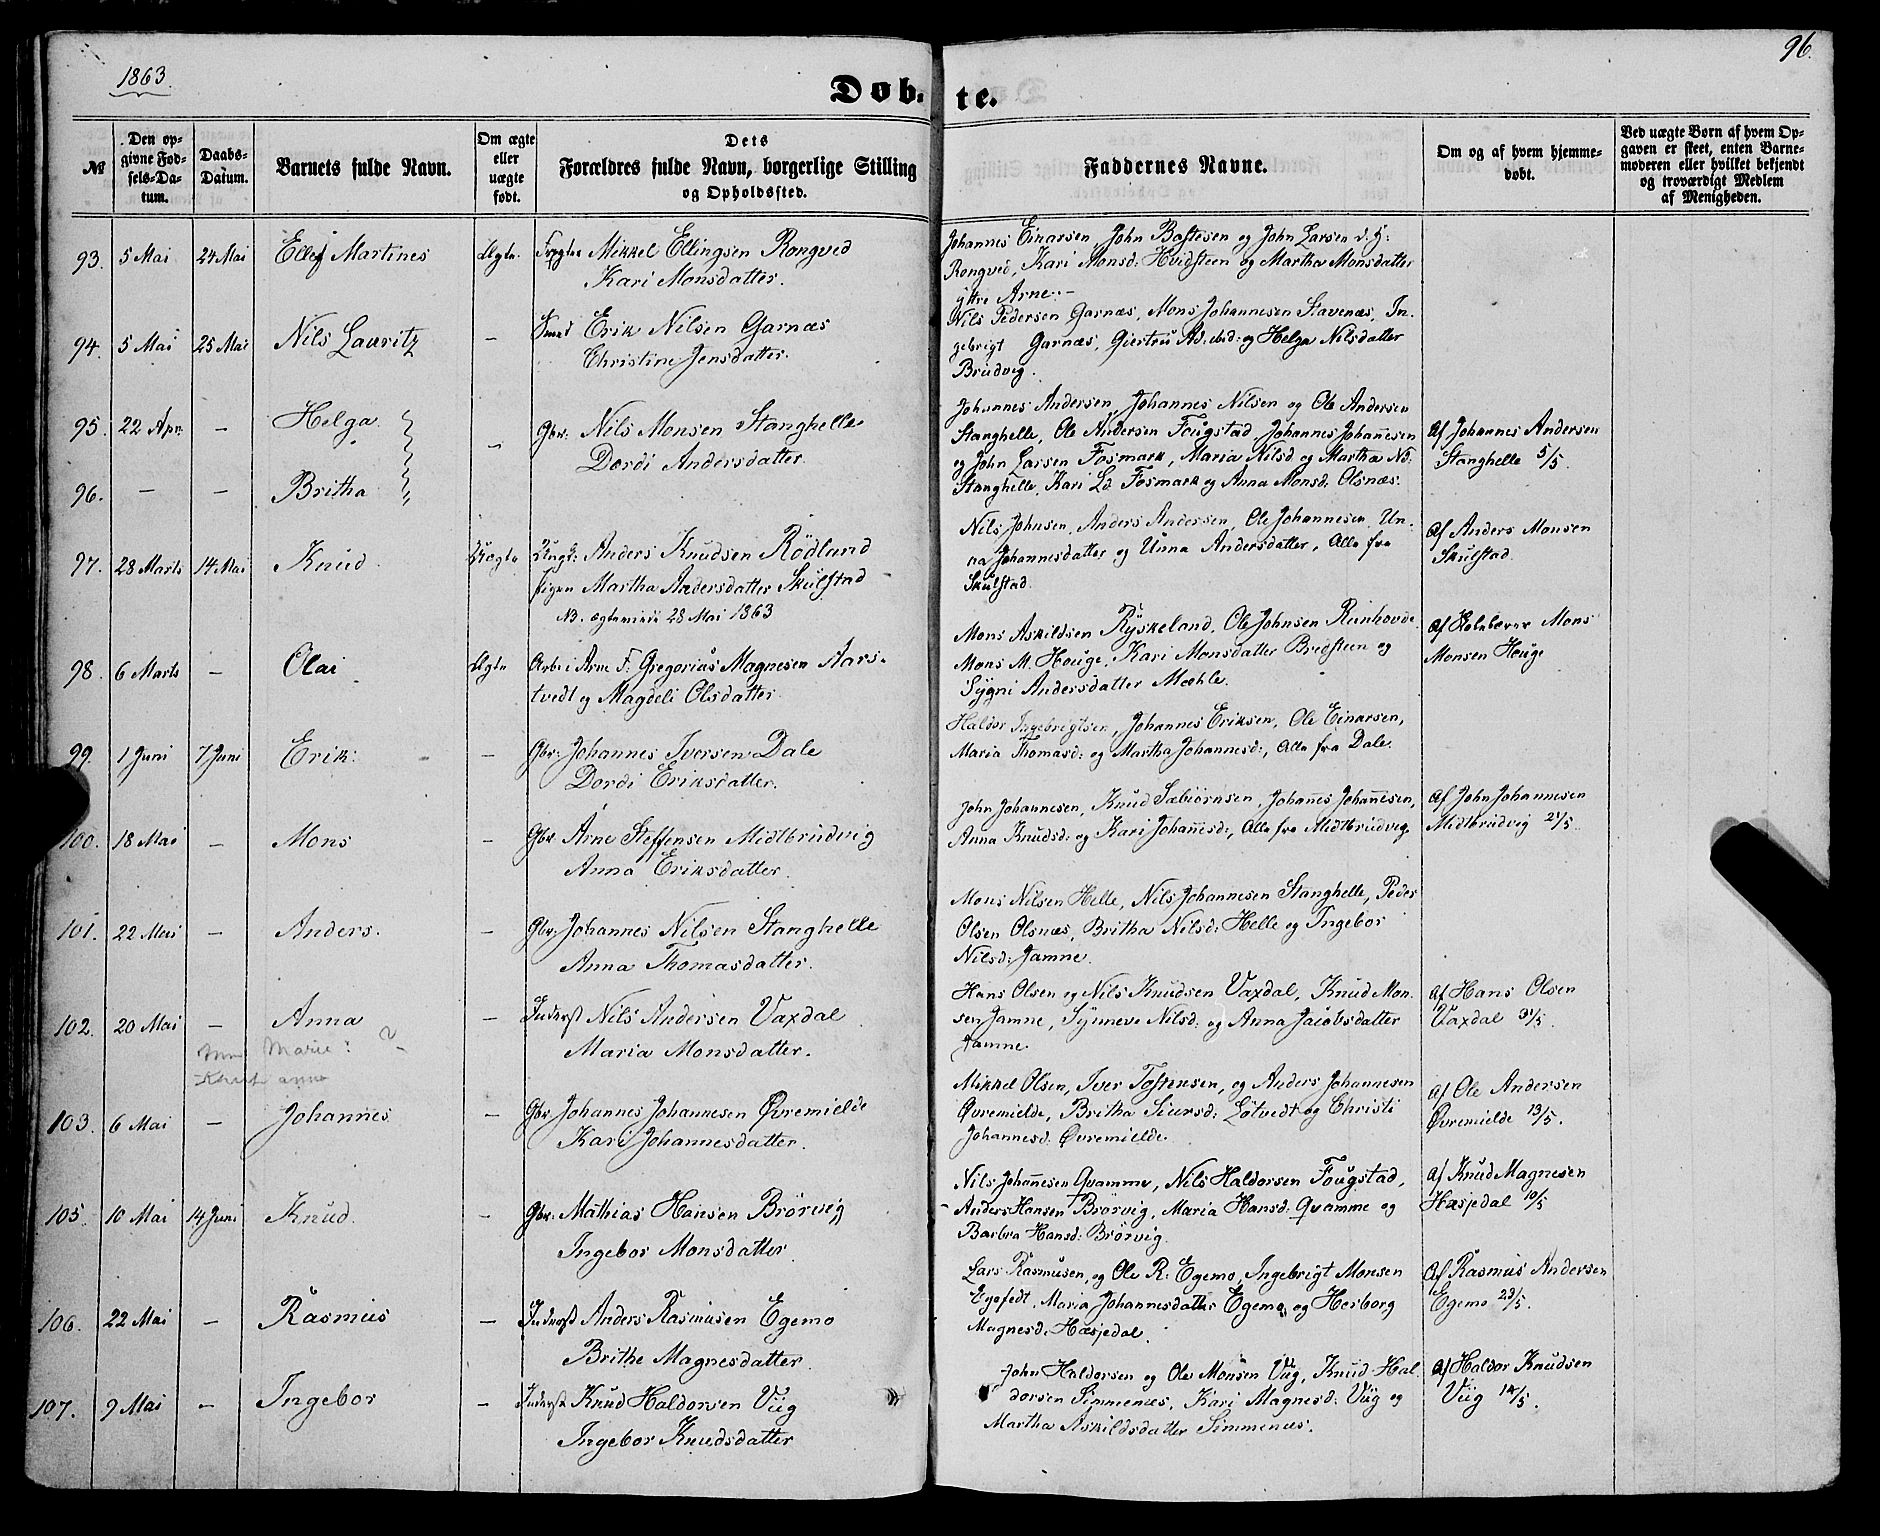 1863.
96.
Døbte.
№
Den opgivne Fødsels-Datum.
Daabs-Datum.
Barnets fulde Navn.
Om ægte eller uægte født.
Dets Forældres fulde Navn, borgerlige Stilling og Opholdssted.
Faddernes Navne.
Om og af hvem hjemmedøbt.
Ved uægte Børn af hvem Opgaven er skeet, enten Barnemoderen eller hvilket bekjendt og troværdigt Medlem af Menigheden.
93. 5 Mai 24 Mai Ellef Martines Ægte. Mikkel Ellingsen Rongved
Kari Monsdatter.
Johannes Einarsen, John Bastesen og John Larsen
Rongved, Kari Monsd: Hvidsteen og Martha Monsdatter
ÿttre Arne.
94. 5 Mai 25 Mai Nils Lauritz – Smed Erik Nilsen Garnæs
Christine Jensdatter.
Nils Pedersen Garnæs, Mons Johannesen Stavenæs, In-
gebrigt Garnæs, Giertru og Helga Nilsdatter
Brudvig.
95. 22 Apr: – Helga. – Gbr: Nils Monsen Stanghelle
Dordi Andersdatter.
96. – – Britha
Johannes Andersen, Johannes Nilsen og Ole Andersen
Stanghelle, Ole Andersen Fougstad, Johannes Johanesen
og John Larsen Fosmark, Maria Nilsd og Martha Nd:
Stanghelle, Kari Ld. Fosmark og Anna Monsd: Olsnæs.
Af Johannes Andersen
Stanghelle 5/5.
97. 28 Marts 14 Mai Knud. Uægte Ungk: Anders Knudsen Rödlund
Pigen Martha Andersdatter Skulstad
NB. 28 Mai 1863
Nils Johnsen, Anders Andersen, Ole Johannesen, Un-
na Johannesdatter og Unna Andersdatter, Alle fra
Skulstad.
Af Anders Monsen
Skulstad.
98. 6 Marts – Olai Ægte Arbr i Arne F. Gregorius Magnesen Aars-
tvedt og Magdeli Olsdatter.
Mons Askildsen Ryskeland, Ole Johnsen Reinhovde
Mons M. Houge, Kari Monsdatter Bredsteen og
Sygni Andersdatter Mæhle.
Af Mons
Monsen Houge
99. 1 Juni 7 Juni Erik: – Gbr: Johannes Iversen Dale
Dordi Eriksdatter.
Haldor Ingebrigtsen, Johannes Eriksen, Ole Einarsen,
Maria Thomasd: og Martha Johannesd:, Alle fra Dale.
100. 18 Mai – Mons – Gbr Arne Steffensen Midtbrudvig
Anna Eriksdatter.
John Johannesen, Knud Sæbiörnsen, Johanes Johanesen,
Anna Knudsd: og Kari Johanesd:, Alle fra Midtbrudvig.
Af John Johannesen
Midtbrudvig 21/5.
101. 22 Mai – Anders. – Gbr: Johannes Nilsen Stanghelle
Anna Thomasdatter.
Mons Nilsen Helle, Nils Johannesen Stanghelle, Peder
Olsen Olsnæs, Britha Nilsd: Helle og Ingebor
Nilsd: Jamne.
102. 20 Mai – Anna – Inderst Nils Andersen Vaxdal
Marie: ?
Maria Monsdatter.
Hans Olsen og Nils Knudsen Vaxdal, Knud Mon-
sen Jamne, Synneve Nilsd: og Anna Jacobsdatter
Jamne.
Af Hans Olsen
Vaxdal 31/5.
103. 6 Mai – Johannes – Gbr Johannes Johannesen Øvremielde
Kari Johannesdatter.
Mikkel Olsen, Iver Tostensen, og Anders Johannesen
Øvremielde, Britha Siursd: Løtvedt og Christi
Johannesd. Øvremielde.
Af Ole Andersen
Øvremielde 13/5.
105. 10 Mai 14 Juni Knud. – Gbr: Mathias Hansen Brörvig
Ingebor Monsdatter.
Nils Johanesen Qvamme, Nils Haldorsen Fougstad,
Anders Hansen Brörvig, Maria Hansd: Qvamme og
Barbra Hansd: Brörvig.
Af Knud Magnesen
Hæsjedal 10/5
106. 22 Mai – Rasmus – Inderst Anders Rasmusen Egemo
Brithe Magnesdatter.
Lars Rasmusen, og Ole R: Egemo, Ingebrigt Monsen
Maria Johannesdatter Egemo, og Herborg
Magnesd. Hæsjedal.
Af Rasmus Andersen
Egemo 23/5.
107. 9 Mai – Ingebor – Inderst Knud Haldorsen Viig
Ingebor Knudsdatter
John Haldorsen og Ole Monsen Viig, Knud Hal-
dorsen Simmenæs, Kari Magnesd: Viig og
Martha Askildsdatter Simmenæs.
Af Haldor Knudsen
Viig 14/5.